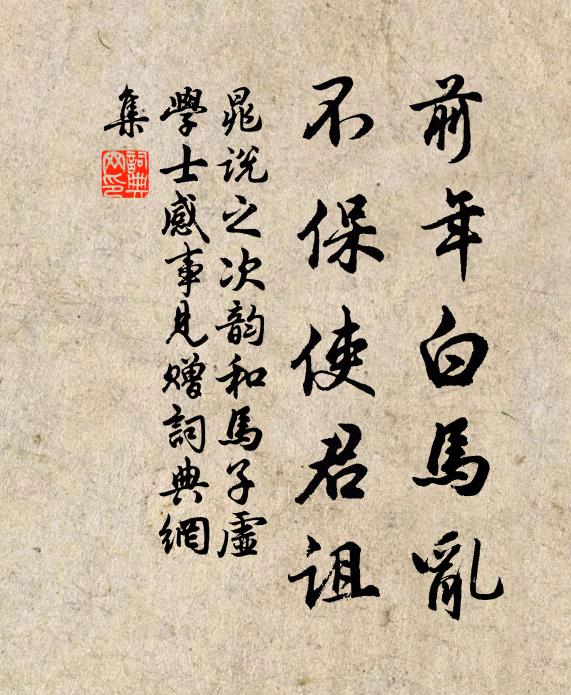 前年白馬亂
不保使君詛
晁說之次韵和馬子虛
學士感事見贈詞典網
集
詞典
网印